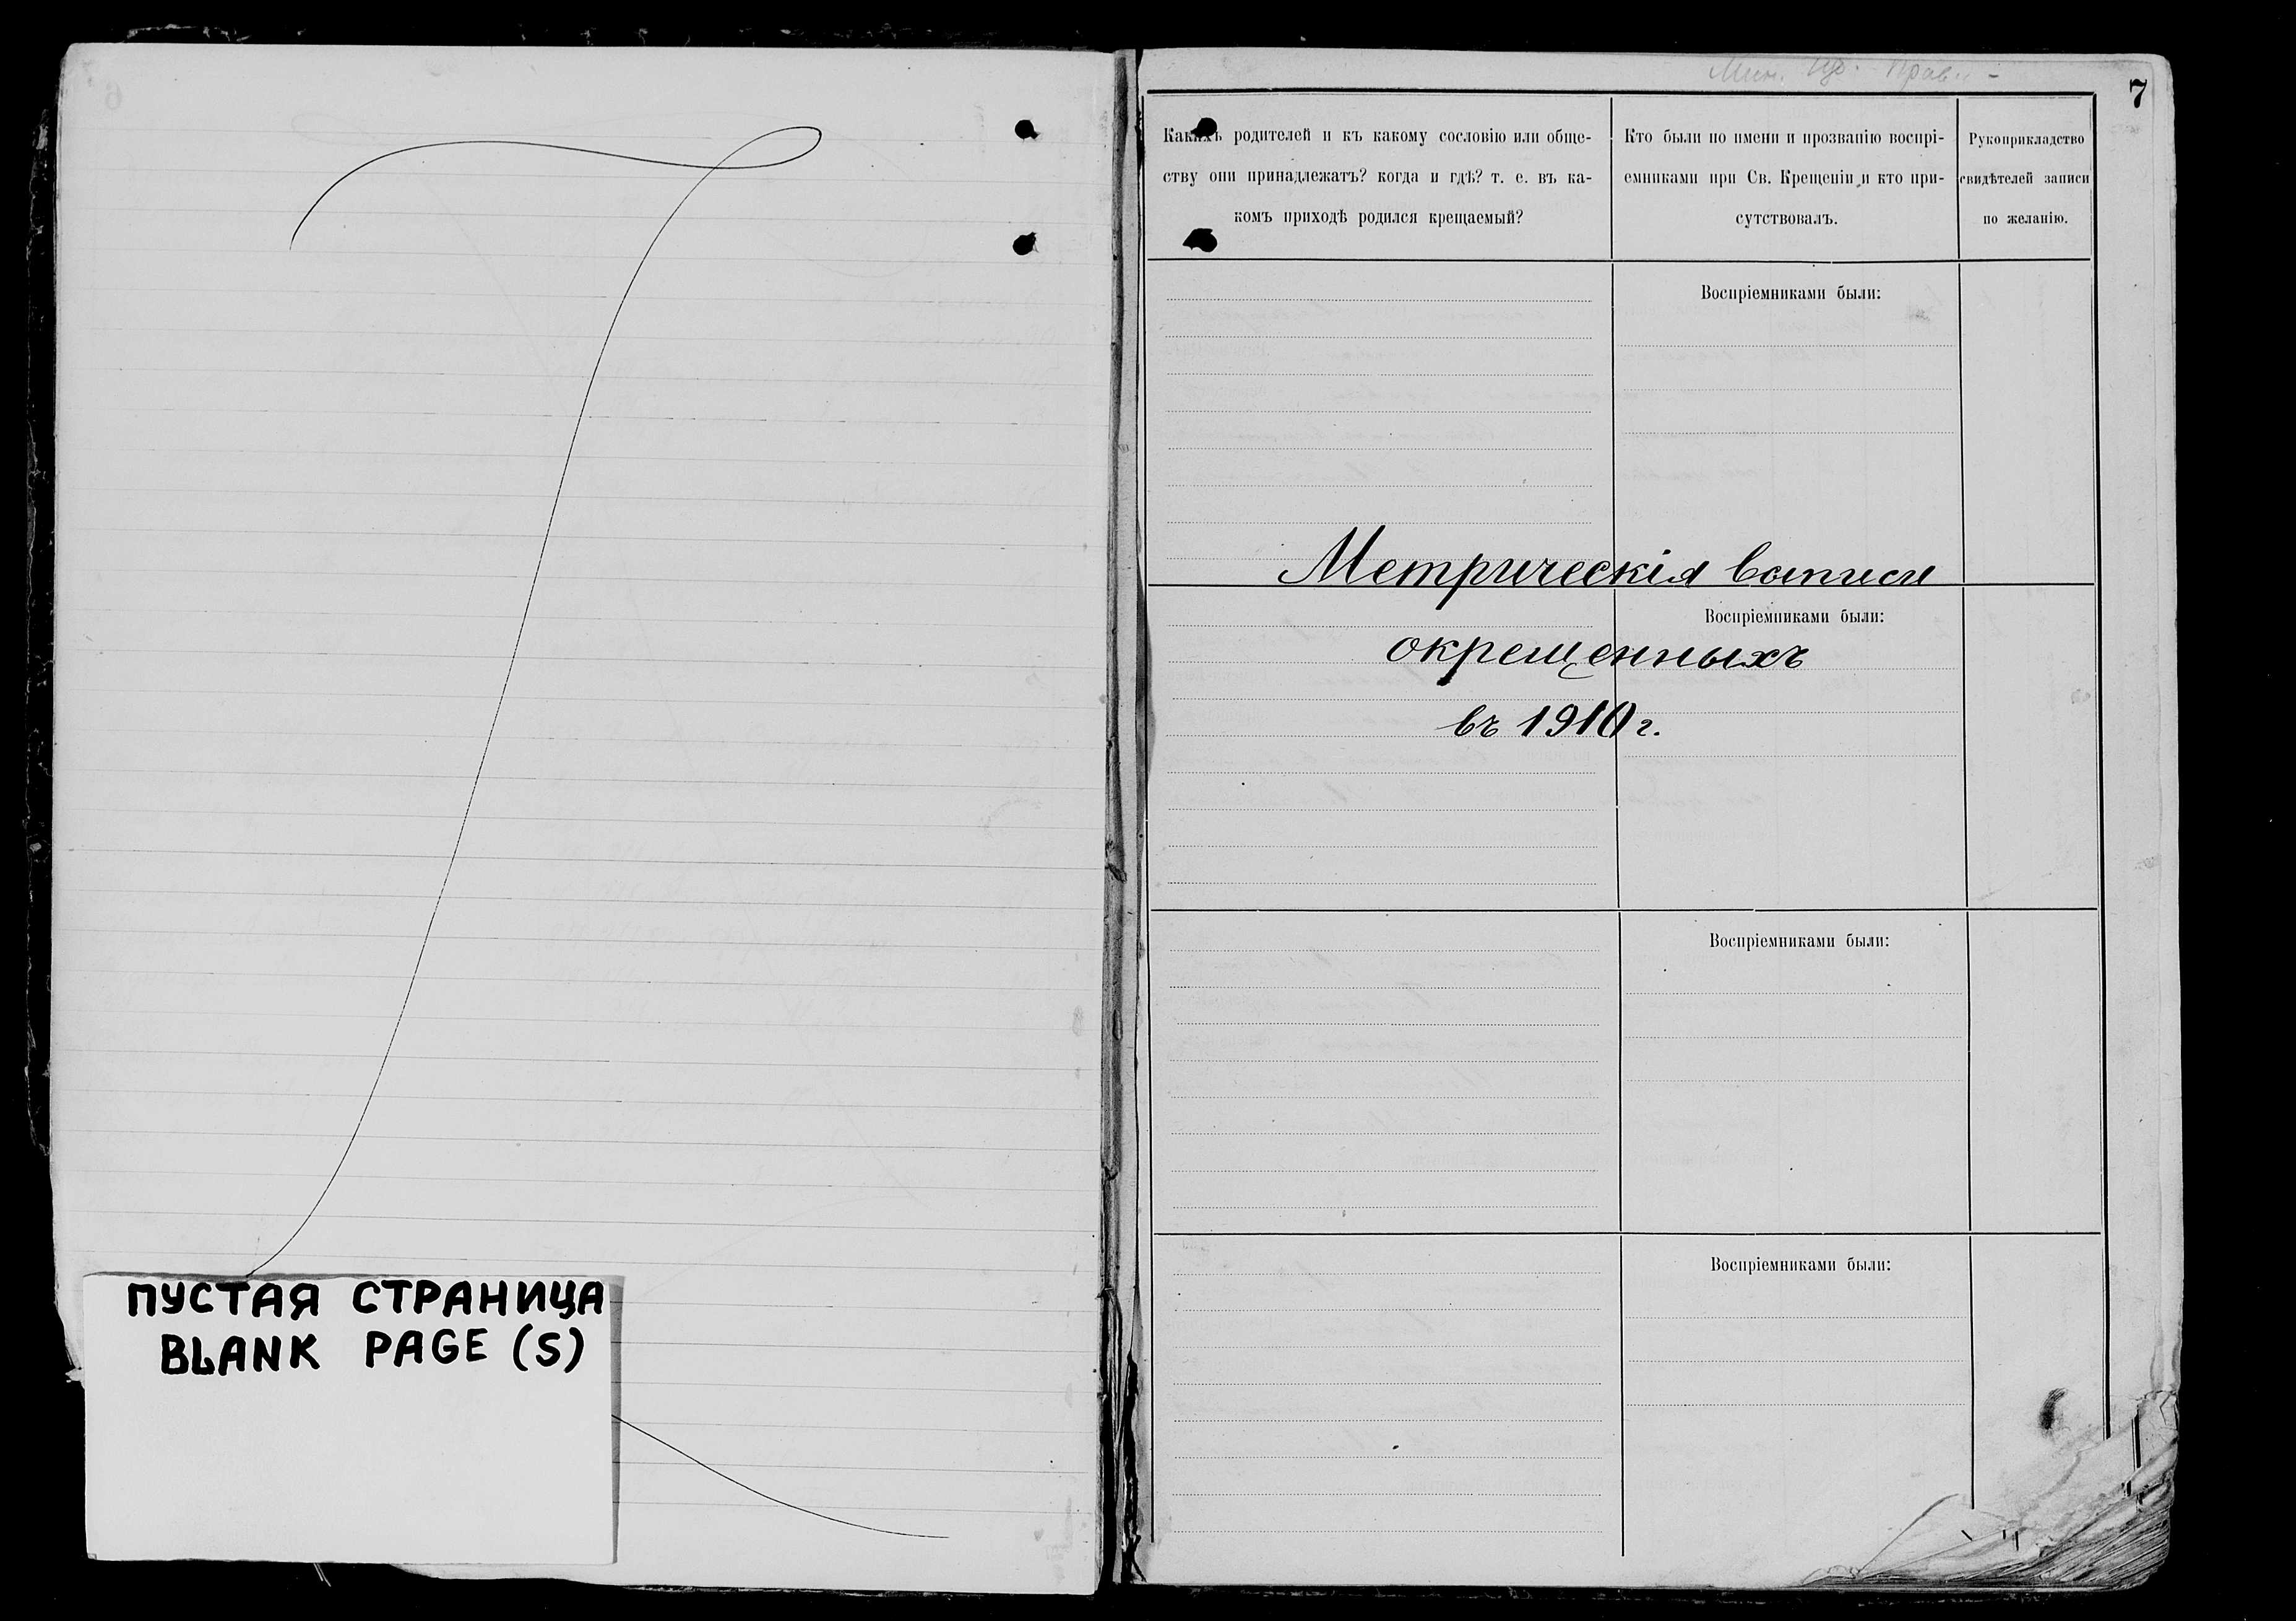 ПУСТАЯ СТРАНИЦА
BLANK PAGE (S)
7
Какихъ родителей и къ какому сословію или обще-
ству они принадлежатъ? когда и гдѣ? т. е. въ ка-
комъ приходѣ родился крещаемый?
Кто были по имени и прозванію воспрі-
емниками при Св. Крещеніи и кто при-
сутствовалъ.
Рукоприкладство
свидѣтелей записи
по желанію.
Воспріемниками были:
Метрическія
Воспріемниками были:
окрещенныхъ
въ 1910 г.
Воспріемниками были:
Воспріемниками были: